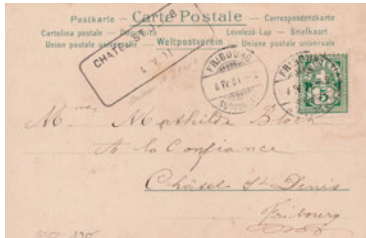 Postkarte — Carte Postale — Correspondenzkarte
Cartolina postale — Levelezö-Lap — Briefkaart
Union postale universelle — Weltpostverein — Union postale universale
CHATEL ST
4. IV. 01
FRIBOURG
4 IV 01
5
Mathilde Block
A la Confiance
Châtel St Denis
Fribourg